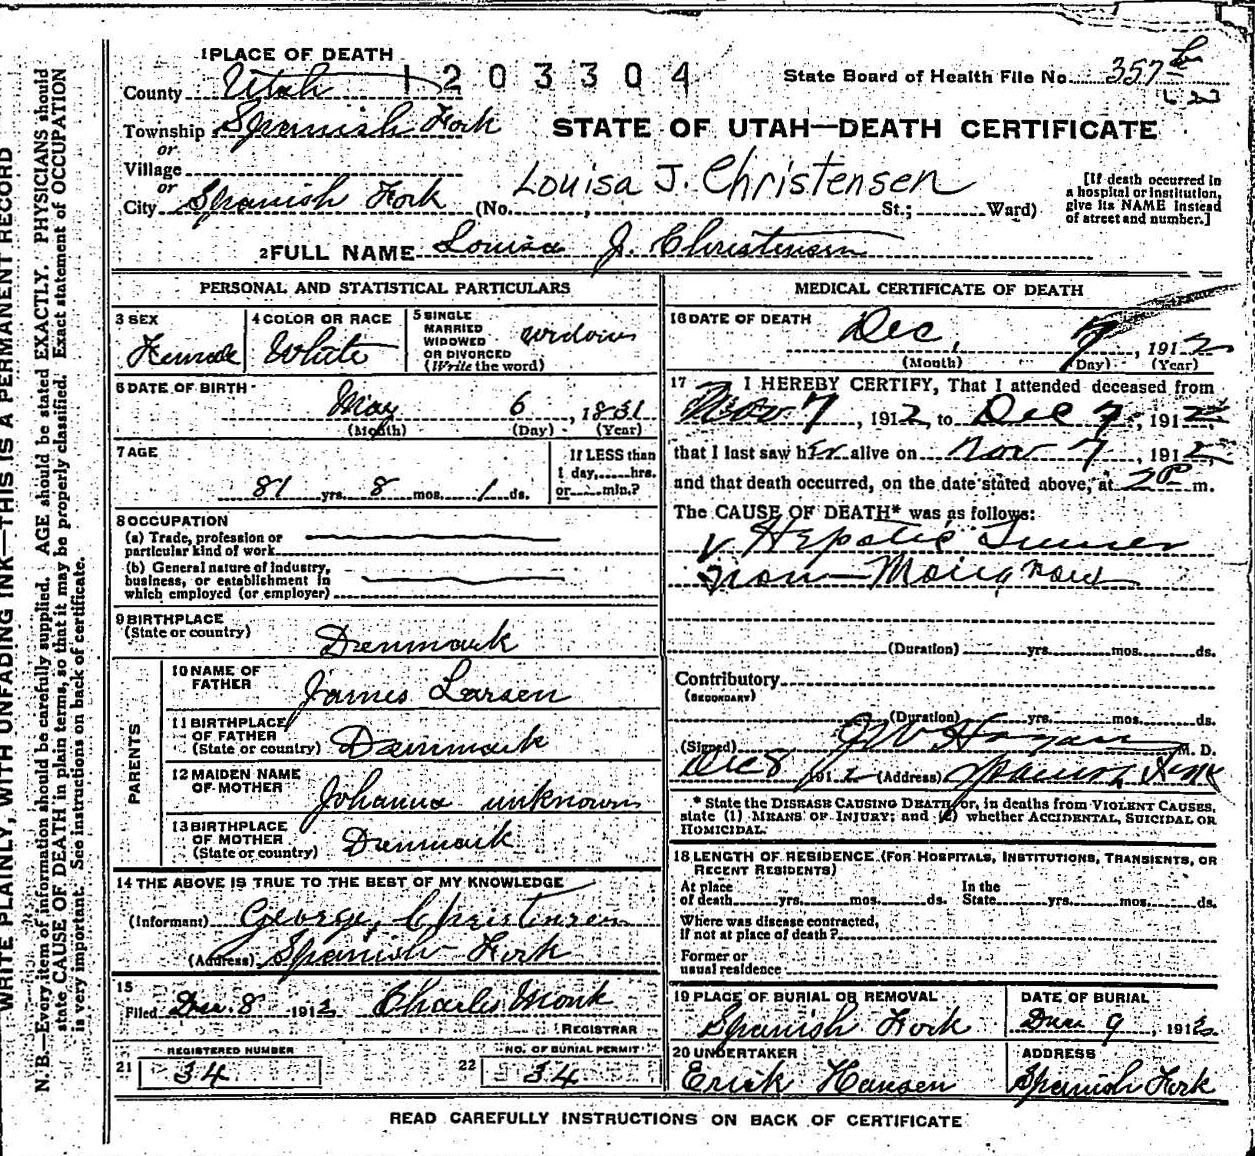 1 PLACE OF DEATH
County Utah
1203304
State Board of Health File No. 357
Township Spanish Fork
or
Village
or
City Spanish Fork (No. , St.; Ward)
STATE OF UTAH—DEATH CERTIFICATE
Louisa J. Christensen
[If death occurred in
a hospital or institution,
give its NAME instead
of street and number.]
2 FULL NAME Louisa J. Christensen
PERSONAL AND STATISTICAL PARTICULARS
3 SEX
Female
4 COLOR OR RACE
White
5 SINGLE
MARRIED
WIDOWED
OR DIVORCED
(Write the word)
widow
6 DATE OF BIRTH
May 6, 1831
(Month) (Day) (Year)
7 AGE
81 yrs. 8 mos. 1 ds.
If LESS than
1 day, hrs.
or min.?
8 OCCUPATION
(a) Trade, profession or
particular kind of work
(b) General nature of industry,
business, or establishment in
which employed (or employer)
9 BIRTHPLACE
(State or country)
Denmark
PARENTS
10 NAME OF
FATHER
James Larsen
11 BIRTHPLACE
OF FATHER
(State or country)
Denmark
12 MAIDEN NAME
OF MOTHER
Johanna unknown
13 BIRTHPLACE
OF MOTHER
(State or country)
Denmark
14 THE ABOVE IS TRUE TO THE BEST OF MY KNOWLEDGE
(Informant) George Christensen
(Address) Spanish Fork
15
Filed Dec. 8 1912 Charles Monk
REGISTRAR
21 REGISTERED NUMBER
34
22 NO. OF BURIAL PERMIT
34
MEDICAL CERTIFICATE OF DEATH
16 DATE OF DEATH
Dec, 7, 1912
(Month) (Day) (Year)
17 I HEREBY CERTIFY, That I attended deceased from
Nov 7, 1912, to Dec 7, 1912,
that I last saw her alive on Nov 7, 1912,
and that death occurred, on the date stated above, at 2 P m.
The CAUSE OF DEATH* was as follows:
Hepatic Tumer
non—
(Duration) yrs. mos. ds.
Contributory
(SECONDARY)
(Duration) yrs. mos. ds.
(Signed) J W Hagan M. D.
Dec 8 1912 (Address) Spanish Fork
* State the DISEASE CAUSING DEATH, or, in deaths from VIOLENT CAUSES,
state (1) MEANS OF INJURY; and (2) whether ACCIDENTAL, SUICIDAL OR
HOMICIDAL.
18 LENGTH OF RESIDENCE (FOR HOSPITALS, INSTITUTIONS, TRANSIENTS, OR
RECENT RESIDENTS)
At place
of death yrs. mos. ds.
In the
State yrs. mos. ds.
Where was disease contracted,
if not at place of death?
Former or
usual residence
19 PLACE OF BURIAL OR REMOVAL
Spanish Fork
DATE OF BURIAL
Dec 9, 1912
20 UNDERTAKER
Erick Hansen
ADDRESS
Spanish Fork
READ CAREFULLY INSTRUCTIONS ON BACK OF CERTIFICATE
WRITE PLAINLY, WITH UNFADING INK—THIS IS A PERMANENT RECORD
N. B.—Every item of information should be carefully supplied. AGE should be stated EXACTLY. PHYSICIANS should
state CAUSE OF DEATH in plain terms, so that it may be properly classified. Exact statement of OCCUPATION
is very important. See instructions on back of certificate.